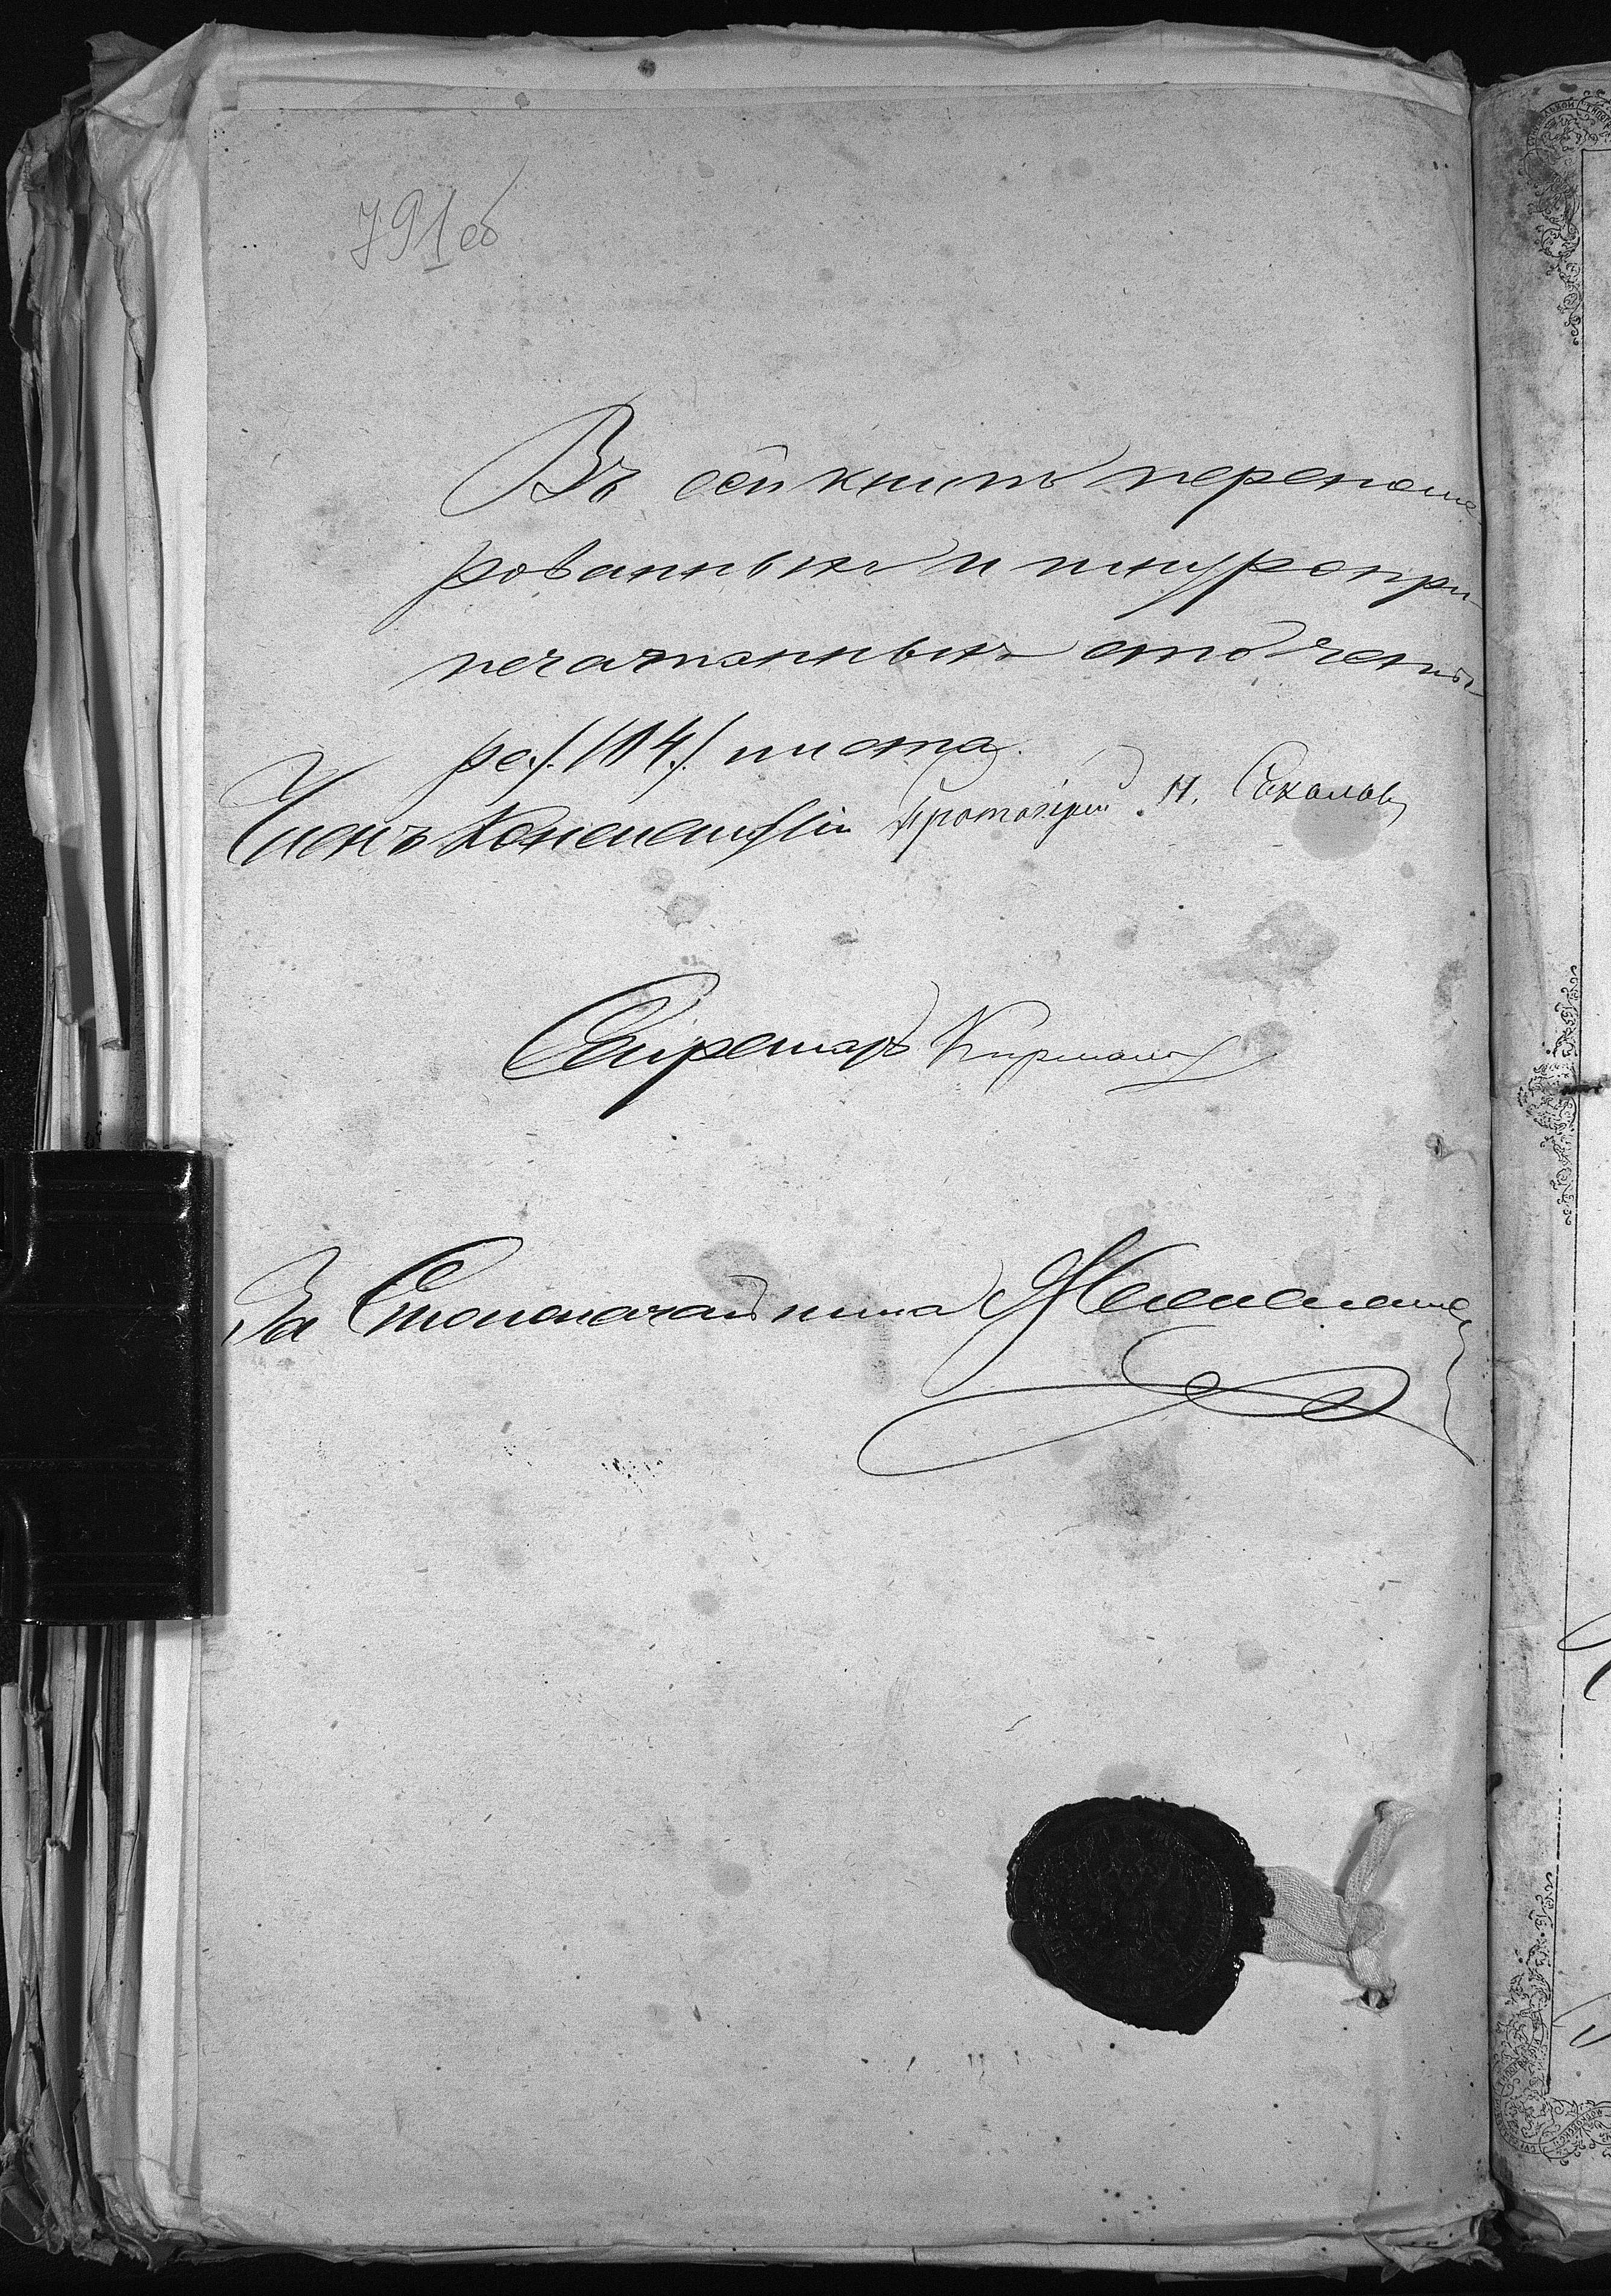 791 об
Въ сей книгѣ перенуме-
рованныхъ и шнуропри-
печатанныхъ сто четы-
ре /.114./ листа.
Членъ Консисторіи Протоіерей Н. Соколовъ
Секретарь
За Столоначальника